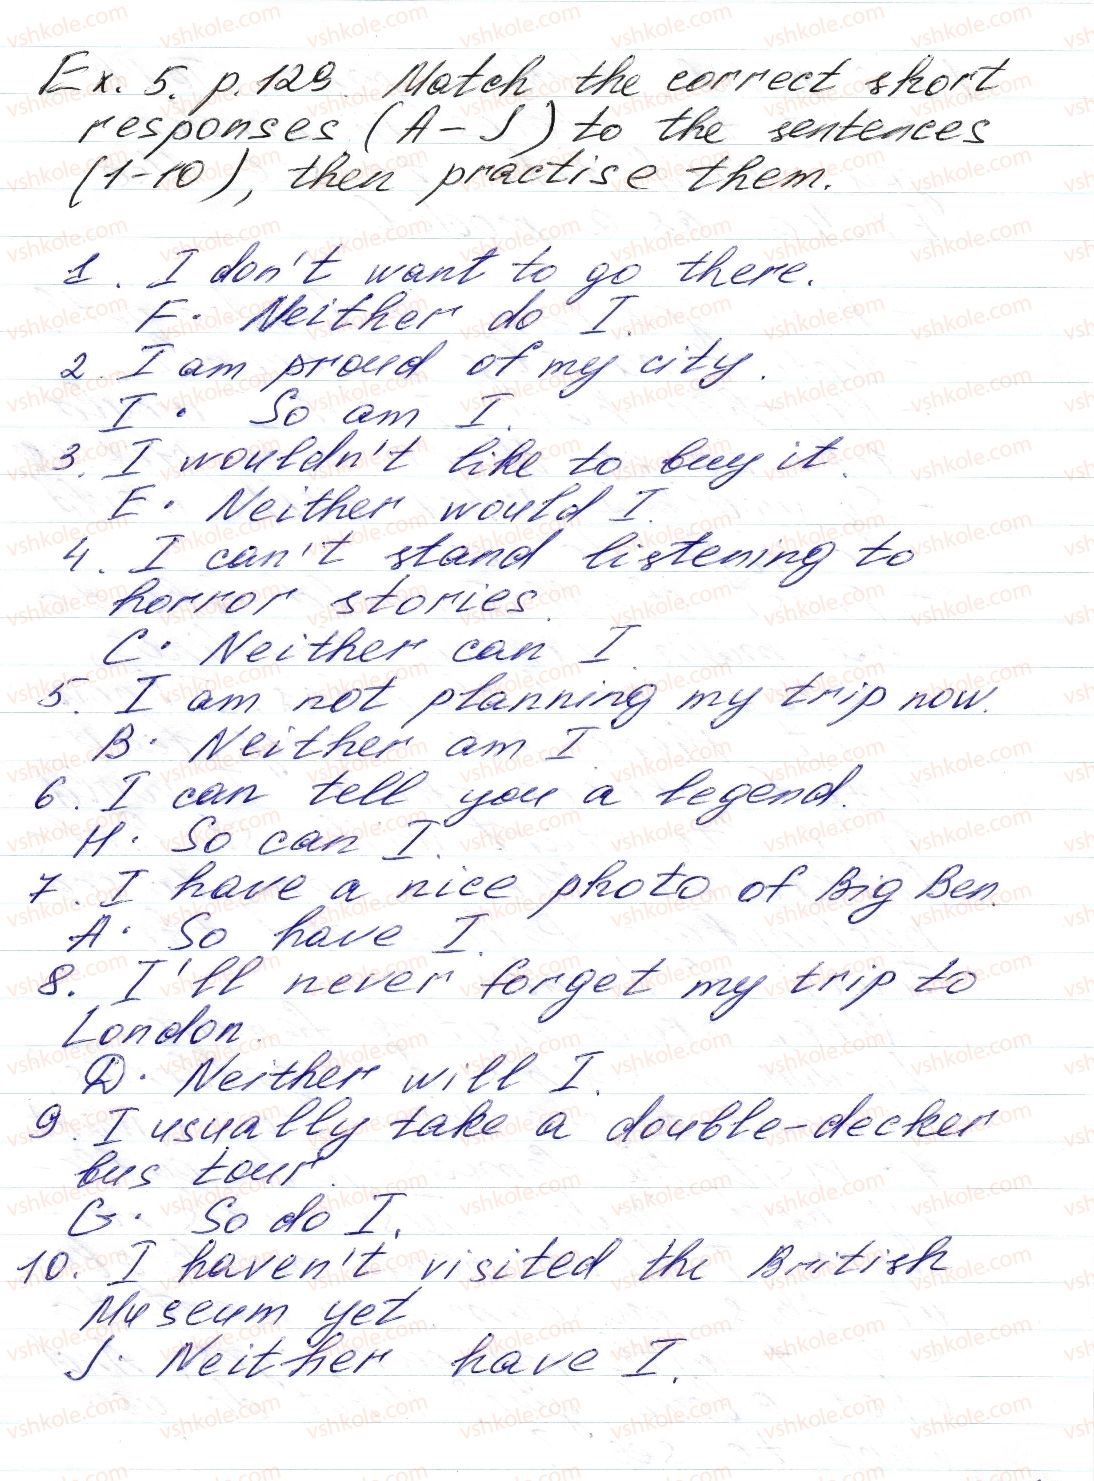 Ex. 5. p. 129. Match the correct short
responses (A-J) to the sentences
(1-10), then practise them.
1. I don't want to go there.
F. Neither do I.
2. I am proud of my city.
I. So am I.
3. I wouldn't like to buy it.
E. Neither would I.
4. I can't stand listening to
horror stories.
C. Neither can I.
5. I am not planning my trip now.
B. Neither am I.
6. I can tell you a legend.
H. So can I.
7. I have a nice photo of Big Ben.
A. So have I.
8. I'll never forget my trip to
London.
D. Neither will I.
9. I usually take a double-decker
bus tour.
G. So do I.
10. I haven't visited the British
Museum yet.
J. Neither have I.
vshkole.com